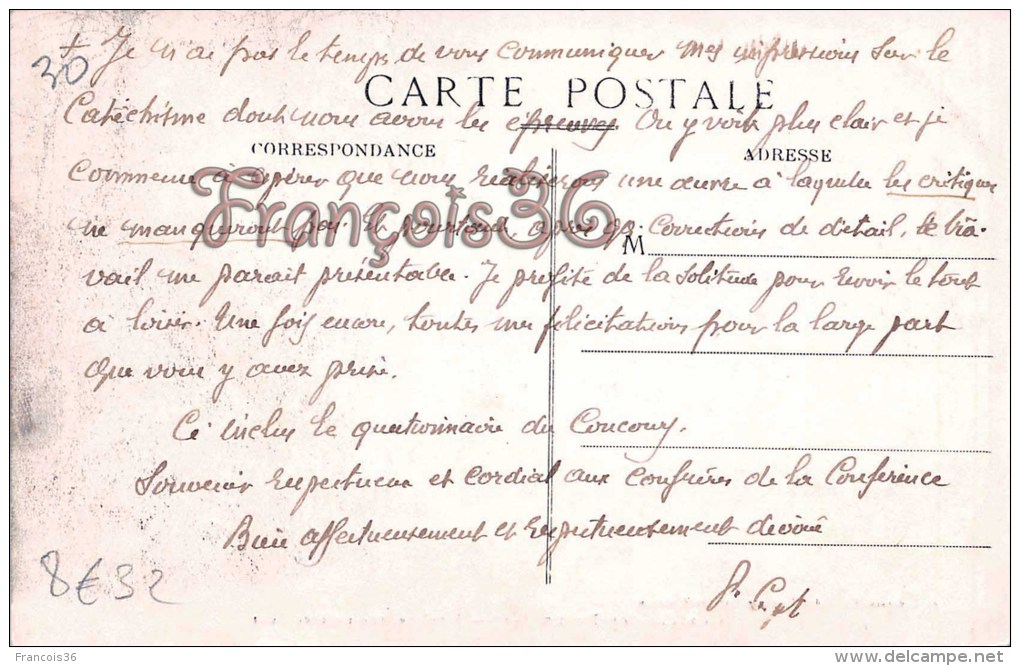 30
+ Je n'ai pas le temps de vous communiquer mes impressions sur le
CARTE POSTALE
Catéchisme dont nous avons les épreuves. On y voit plus clair et je
CORRESPONDANCE
ADRESSE
commence à espérer que nous réaliserons une œuvre à laquelle les critiques
François36
ne manqueront pas. Et pourtant, après qq. corrections de détail, le tra-
M
vail me parait présentable. Je profite de la solitude pour revoir le tout
à loisir. Une fois encore, toutes mes félicitations pour la large part
que vous y avez prise.
Ci inclus le questionnaire du Concours.
Souvenir respectueux et cordial aux confrères de la Conférence
Bien affectueusement et respectueusement dévoué
8€32
Francois36
www.delcampe.net